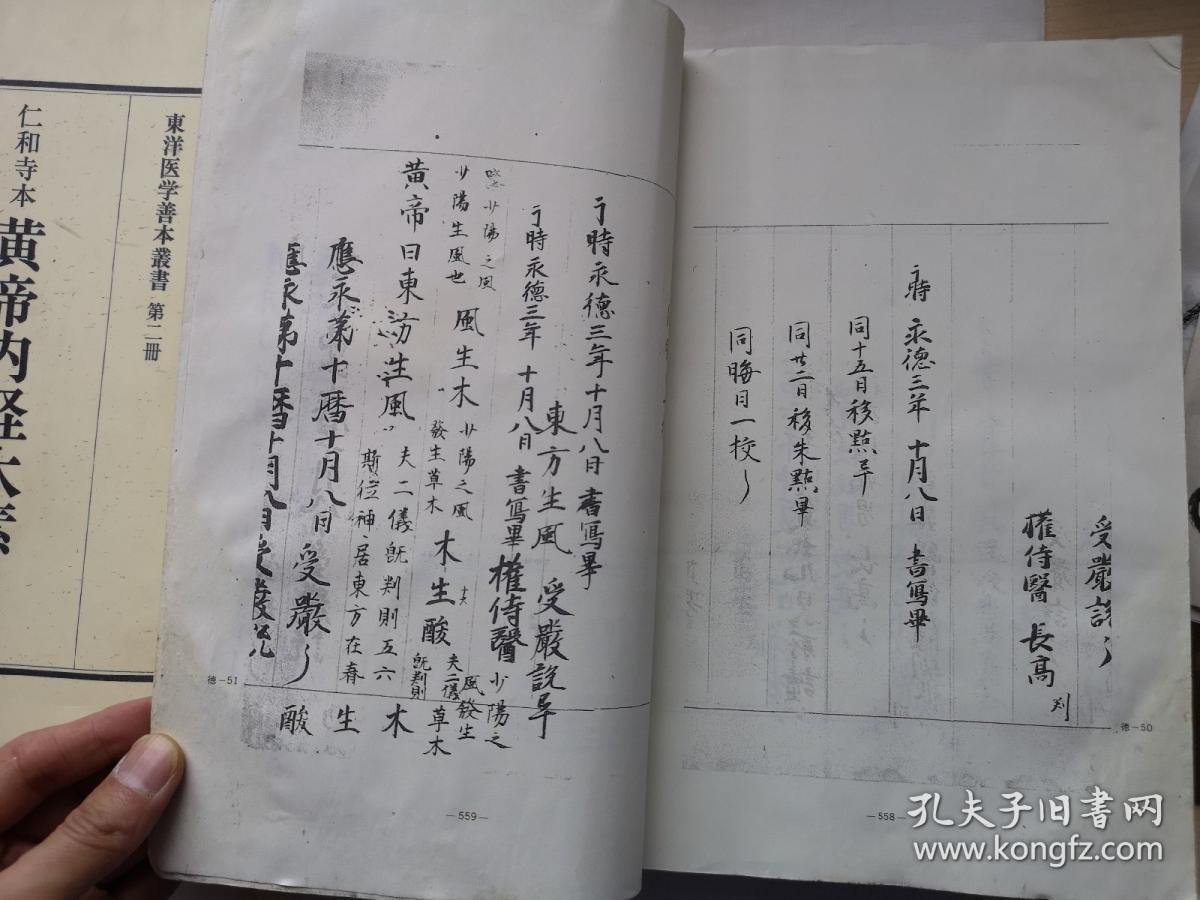 受嚴説〻
權侍醫 長高 判
于時 永德三年 十月八日 書寫畢
同十五日移點畢
同廿二日移朱點畢
同晦日一校〻
德—50
—558—
于時永德三年十月八日書寫畢
東方生風 受嚴説畢
于時永德三年 十月八日 書寫畢 權侍醫
少陽之風
少陽生風也 風生木 少陽之風
發生草木 木生酸 夫二儀
既判則
少陽之
風發生
草木
黄帝曰東方生風 夫二儀既判則五六
斯位神居東方在春
應永第十曆十月八日 受嚴〻
應永第十曆十月八日受嚴
木
生
酸
德—51
—559—
東洋医学善本叢書 第二冊
仁和寺本 黄帝内経太素
孔夫子旧书网
www.kongfz.com